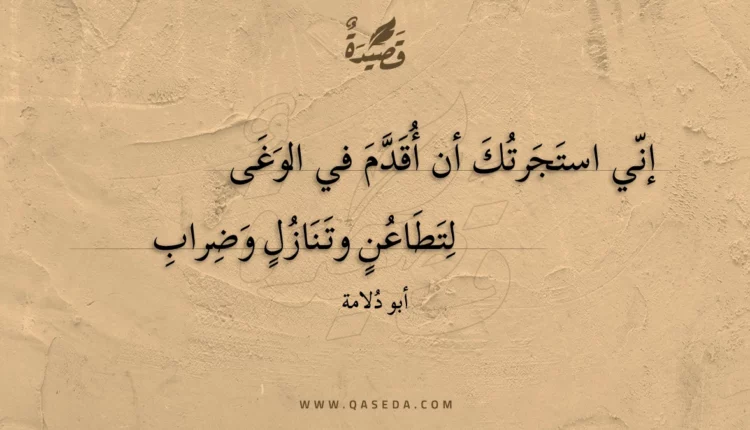 قَصِيدَةٌ
إنّي استَجَرتُكَ أن أُقَدَّمَ في الوَغَى
لِتَطَاعُنٍ وتَنَازُلٍ وَضِرابِ
أبو دُلامة
WWW.QASEDA.COM